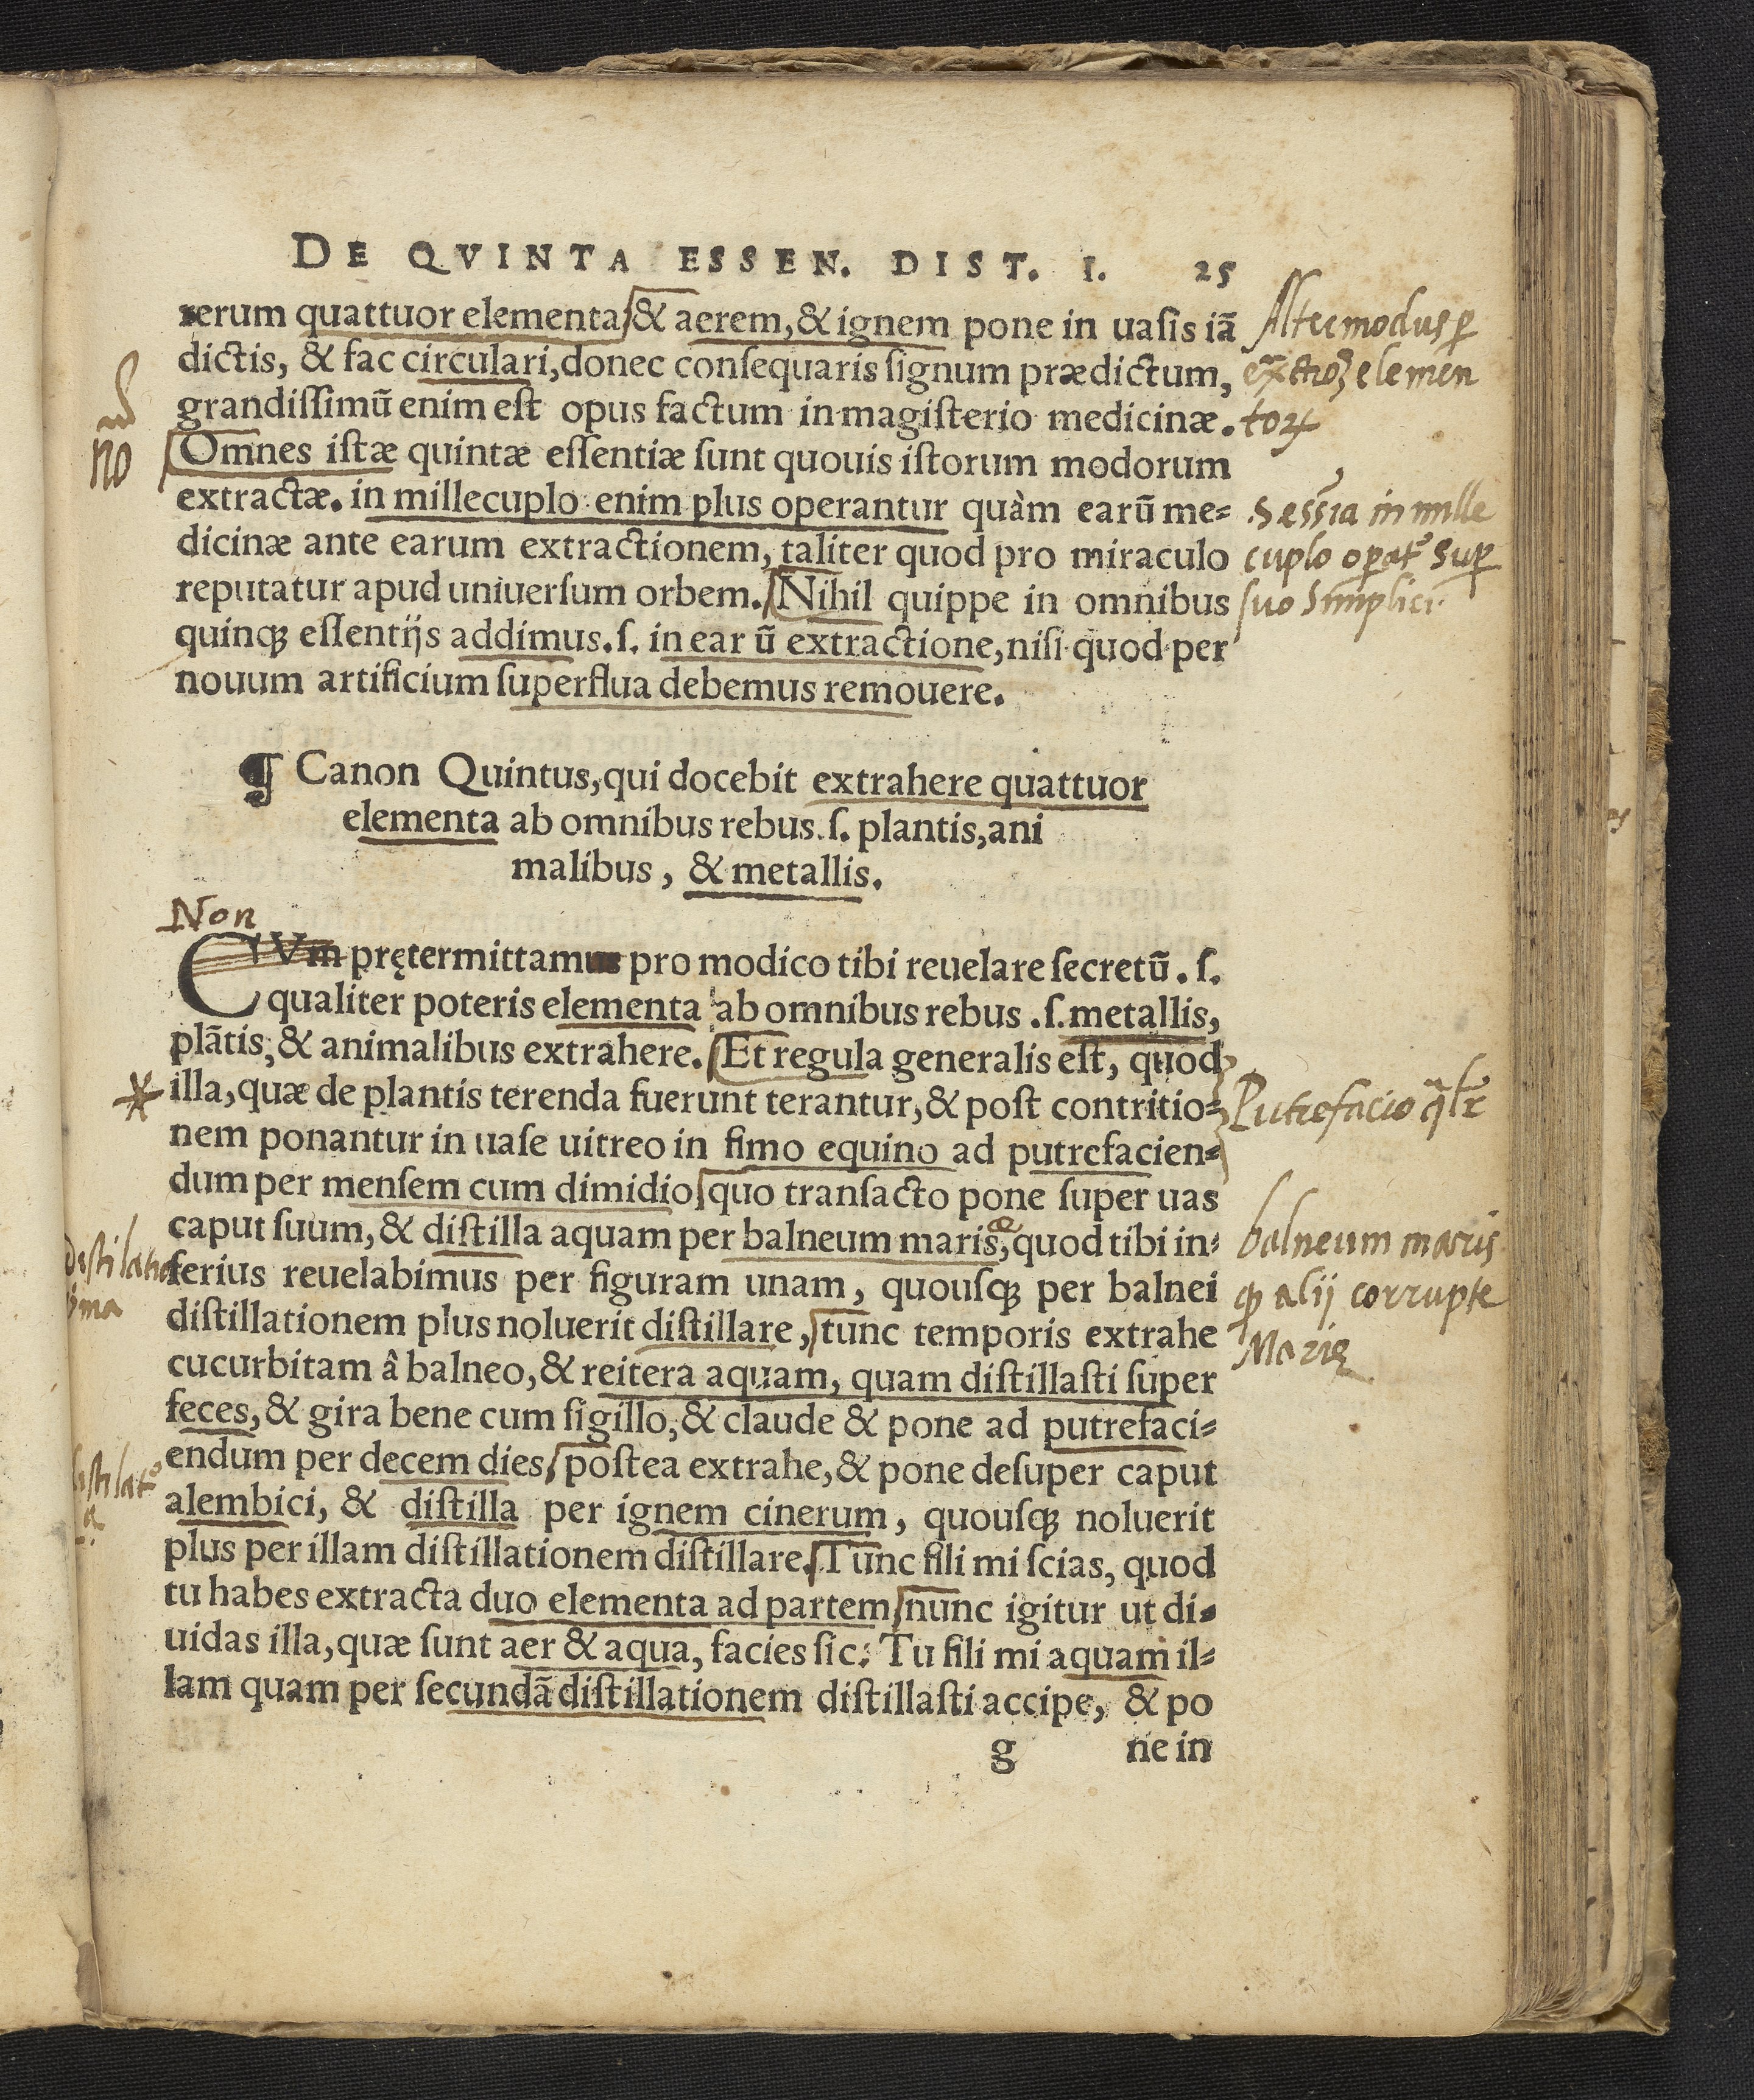 DE QVINTA ESSEN. DIST. I. 25
rerum quattuor elementa & aerem, & ignem pone in uasis iã
dictis, & fac circulari, donec consequaris signum prædictum,
grandissimũ enim est opus factum in magisterio medicinæ.
Omnes istæ quintæ essentiæ sunt quouis istorum modorum
extractæ. in millecuplo enim plus operantur quàm earũ me-
dicinæ ante earum extractionem, taliter quod pro miraculo
reputatur apud uniuersum orbem. Nihil quippe in omnibus
quinqꝫ essentijs addimus. ſ. in ear ũ extractione, nisi quod per
nouum artificium superflua debemus remouere.
¶ Canon Quintus, qui docebit extrahere quattuor
elementa ab omnibus rebus. ſ. plantis, ani
malibus, & metallis.
Non
CVm prętermittamus pro modico tibi reuelare secretũ. ſ.
qualiter poteris elementa ab omnibus rebus . ſ. metallis,
plãtis, & animalibus extrahere. Et regula generalis est, quod
illa, quæ de plantis terenda fuerunt terantur, & post contritio-
nem ponantur in uase uitreo in fimo equino ad putrefacien-
dum per mensem cum dimidio quo transacto pone super uas
caput suum, & distilla aquam per balneum maris, quod tibi in-
ferius reuelabimus per figuram unam, quousqꝫ per balnei
distillationem plus noluerit distillare, tunc temporis extrahe
cucurbitam â balneo, & reitera aquam, quam distillasti super
feces, & gira bene cum sigillo, & claude & pone ad putrefaci-
endum per decem dies, postea extrahe, & pone desuper caput
alembici, & distilla per ignem cinerum, quousqꝫ noluerit
plus per illam distillationem distillare. Tunc fili mi scias, quod
tu habes extracta duo elementa ad partem nunc igitur ut di-
uidas illa, quæ sunt aer & aqua, facies sic: Tu fili mi aquam il-
lam quam per secundã distillationem distillasti accipe, & po
g ne in
Alter modus ꝑ
elemen
toꝝ
no
5 essẽtia in mille
cuplo oꝑat' suꝑ
suo simplici.
Putrefacio
balneum maris
alij corrupte
Marię